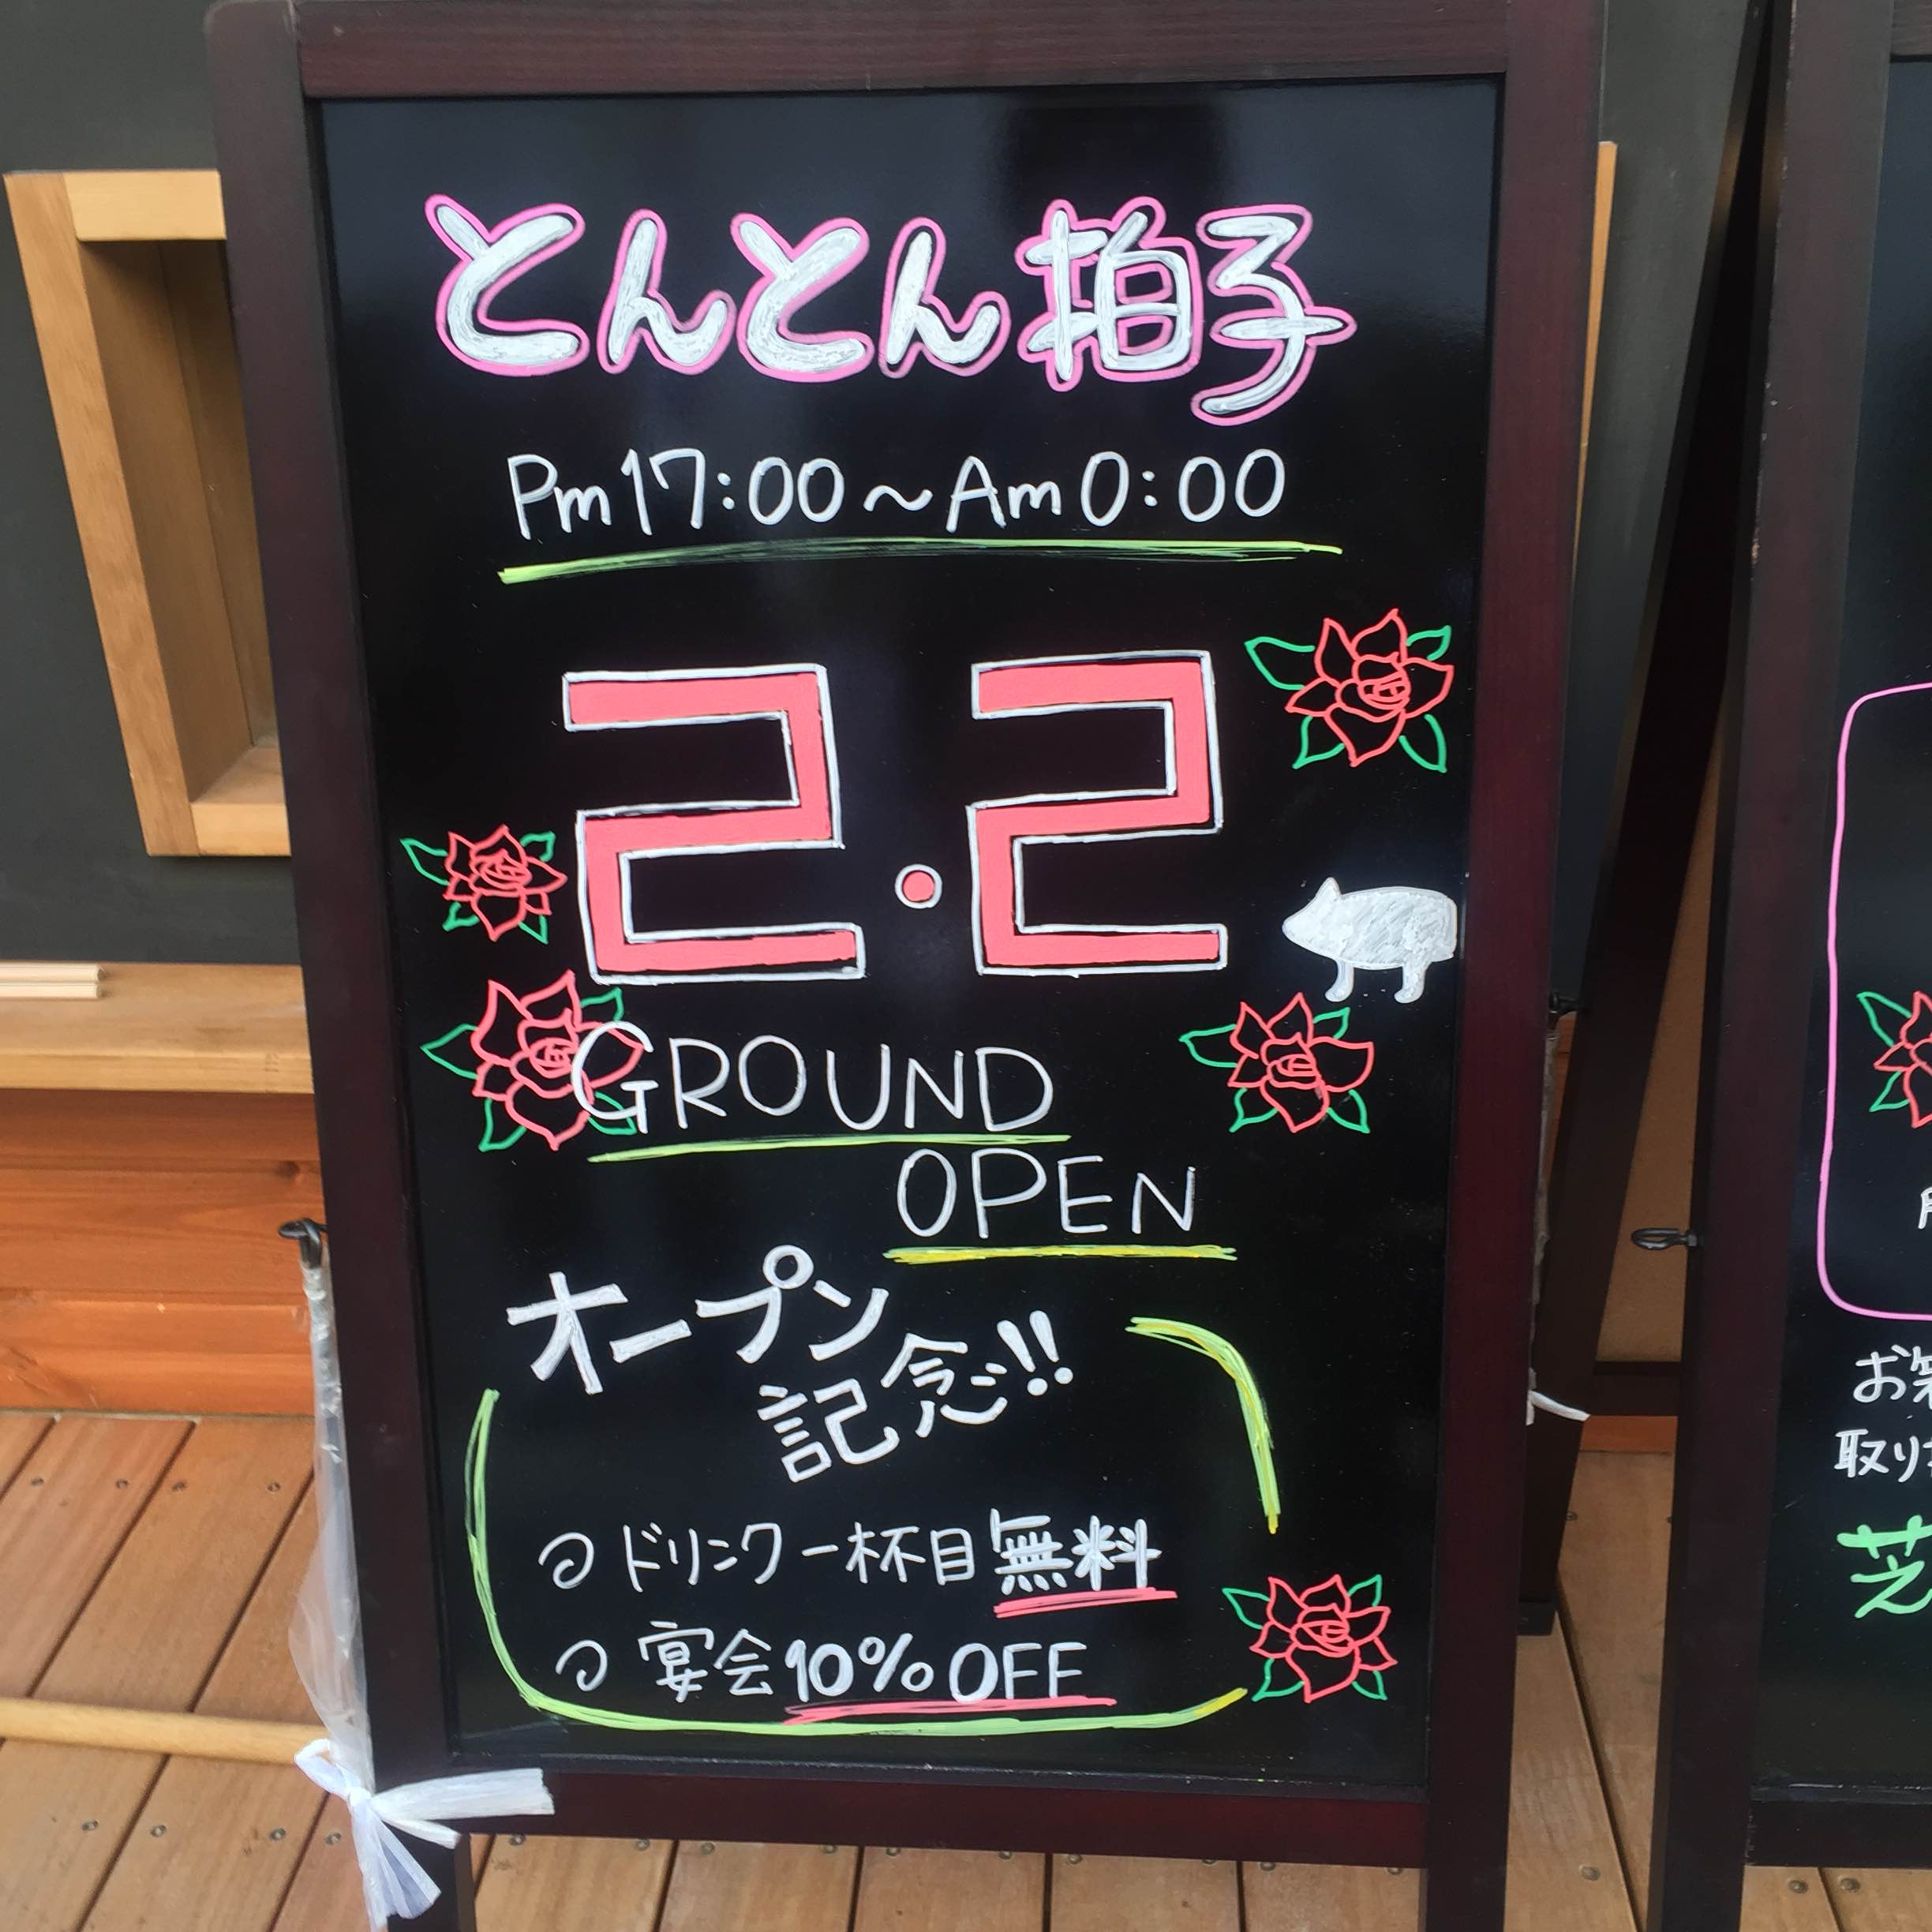 とんとん拍子
Pm17:00～Am0:00
2.2
GROUND
OPEN
オープン
記念!!
ドリンク一杯目無料
宴会10%OFF
お
取り
芝